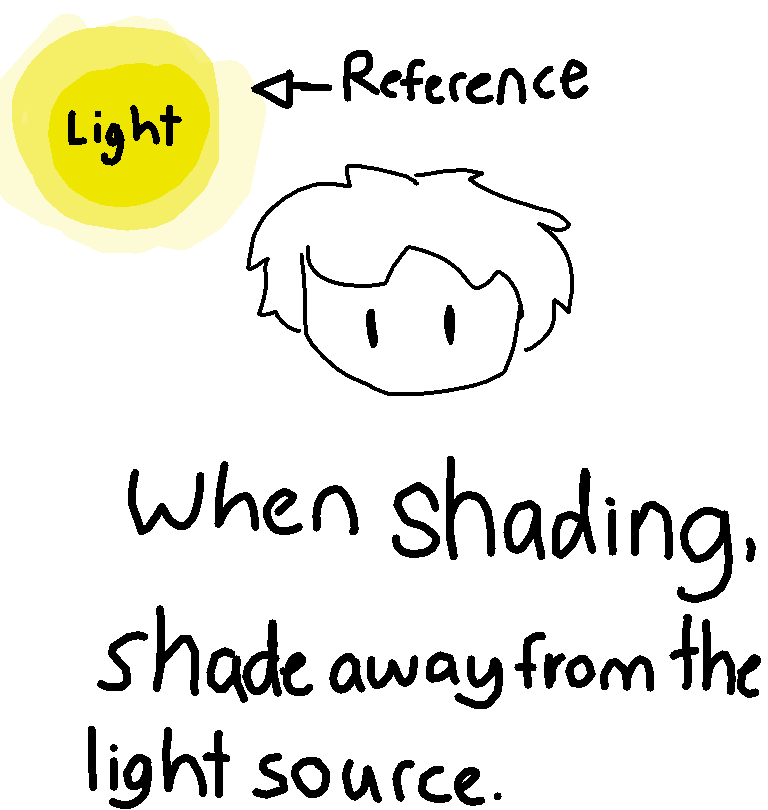 Light
Reference
When shading,
shade away from the
light source.